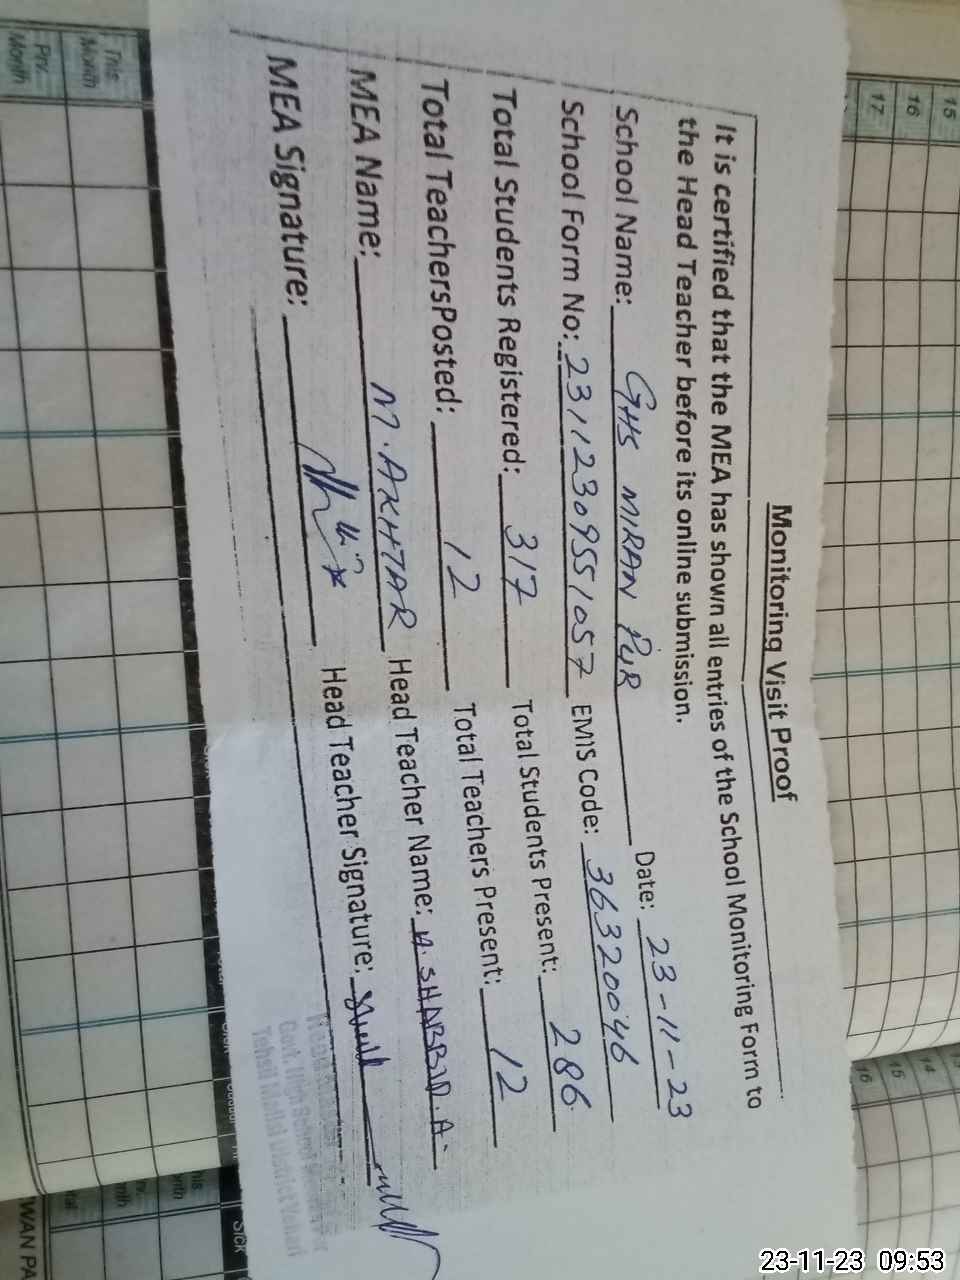 Monitoring Visit Proof
It is certified that the MEA has shown all entries of the School Monitoring Form to
the Head Teacher before its online submission.
School Name: GHS MIRAN PUR Date: 23-11-23
School Form No: 23112309551057 EMIS Code: 36320046
Total Students Registered: 317 Total Students Present: 286
Total TeachersPosted: 12 Total Teachers Present: 12
MEA Name: M. AKHTAR Head Teacher Name: SHABBIR. A
MEA Signature: Head Teacher Signature:
Govt. High School
Tehsil Mailsi District Vehari
15
16
17
14
15
16
This Month
Prv. Month
Sick
WAN PA
23-11-23 09:53